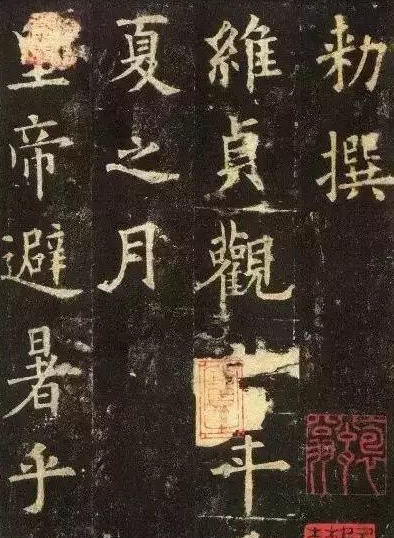 勑撰
維貞觀年
夏之月
皇帝避暑乎